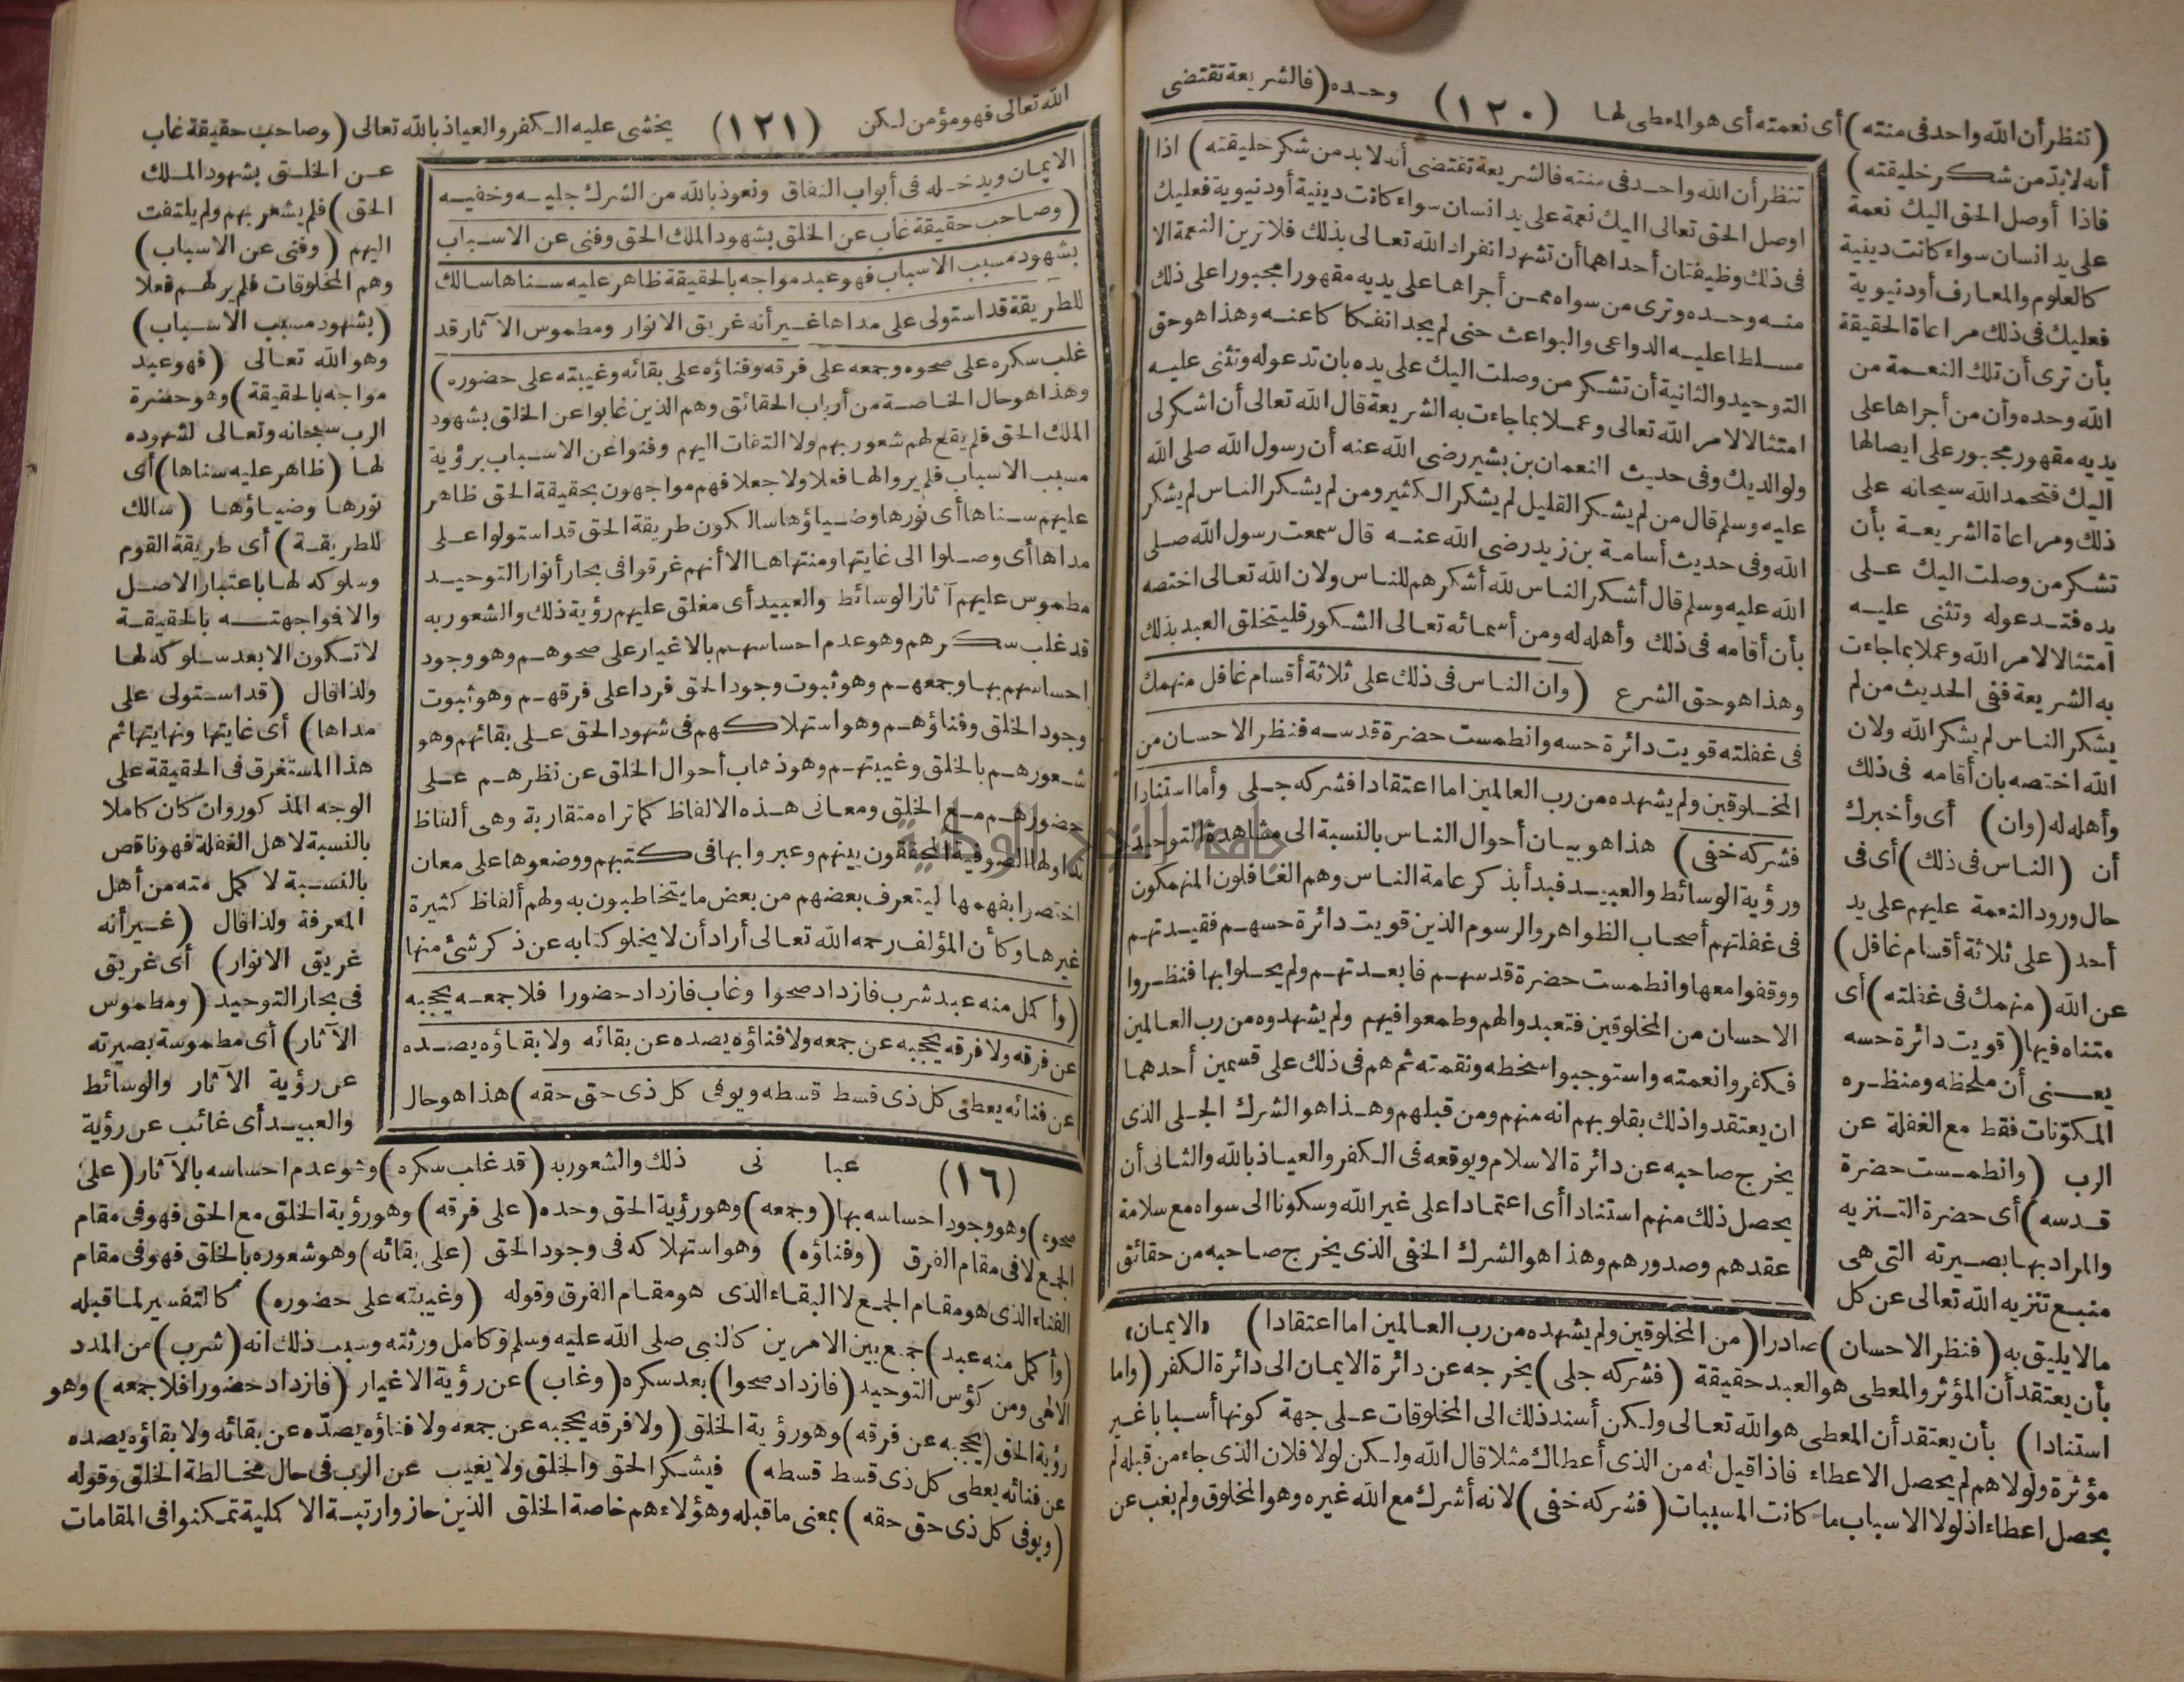 (تنظر أن الله واحد فى منته) أى نعمته أى هو المعطى لها (١٢٠) وحده (فالشريعة تقتضى
أنه لا بد من شكر خليقته)
فاذا أوصل الحق اليك نعمة
على يد انسان سواء كانت دينية
كالعلوم والمعارف أو دنيوية
فعليك فى ذلك مراعاة الحقيقة
بأن ترى أن تلك النعمة من
الله وحده وأن من أجراها على
يديه مقهور مجبور على ايصالها
اليك فتحمد الله سبحانه على
ذلك ومراعاة الشريعة بأن
تشكر من وصلت اليك على
يده فتدعو له وتثنى عليه
امتثالا لامر الله وعملا بما جاءت
به الشريعة ففى الحديث من لم
يشكر الناس لم يشكر الله ولان
الله اختصه بان أقامه فى ذلك
وأهله له (وان) أى وأخبرك
أن (الناس فى ذلك) أى فى
حال ورود النعمة عليهم على يد
أحد (على ثلاثة أقسام غافل)
عن الله (منهمك فى غفلته) أى
متناه فيها (قويت دائرة حسه
يعنى أن ملحظه ومنظره
المكونات فقط مع الغفلة عن
الرب (وانطمست حضرة
قدسه) أى حضرة التنزيه
والمراد بها بصيرته التى هى
منبع تنزيه الله تعالى عن كل
تنظر أن الله واحد فى منته فالشريعة تقتضى أنه لا بد من شكر خليقته) اذا
اوصل الحق تعالى اليك نعمة على يد انسان سواء كانت دينية أو دنيوية فعليك
فى ذلك وظيفتان أحداهما أن تشهد انفراد الله تعالى بذلك فلا ترين النعمة الا
منه وحده وترى من سواه ممن أجراها على يديه مقهورا مجبورا على ذلك
مسلطا عليه الدواعى والبواعث حتى لم يجد انفكا كا عنه وهذا هو حق
التوحيد والثانية أن تشكر من وصلت اليك على يده بان تدعو له وتثنى عليه
امتثالا لامر الله تعالى وعملا بما جاءت به الشريعة قال الله تعالى أن اشكر لى
ولوالديك وفى حديث النعمان بن بشير رضى الله عنه أن رسول الله صلى الله
عليه وسلم قال من لم يشكر القليل لم يشكر الكثير ومن لم يشكر الناس لم يشكر
الله وفى حديث أسامة بن زيد رضى الله عنه قال سمعت رسول الله صلى
الله عليه وسلم قال أشكر الناس لله أشكرهم للناس ولان الله تعالى اختصه
بأن أقامه فى ذلك وأهله له ومن أسمائه تعالى الشكور فليتخلق العبد بذلك
وهذا هو حق الشرع (وان الناس فى ذلك على ثلاثة أقسام غافل منهمك
فى غفلته قويت دائرة حسه وانطمست حضرة قدسه فنظر الاحسان من
المخلوقين ولم يشهده من رب العالمين اما اعتقادا فشركه جلى وأما استنادا
فشركه خفى) هذا هو بيان أحوال الناس بالنسبة الى مشاهدة التوحيد
ورؤية الوسائط والعبيد فبدأ بذكر عامة الناس وهم الغافلون المنهمكون
فى غفلتهم أصحاب الظواهر والرسوم الذين قويت دائرة حسهم فقيدتهم
ووقفوا معها وانطمست حضرة قدسهم فابعدتهم ولم يحلوا بها فنظروا
الاحسان من المخلوقين فتعبدوا لهم وطمعوا فيهم ولم يشهدوه من رب العالمين
فكفروا نعمته واستوجبوا سخطه ونقمته ثم هم فى ذلك على قسمين أحدهما
ان يعتقدوا ذلك بقلوبهم انه منهم ومن قبلهم وهذا هو الشرك الجلى الذى
يخرج صاحبه عن دائرة الاسلام ويوقعه فى الكفر والعياذ بالله والثانى أن
يحصل ذلك منهم استنادا أى اعتمادا على غير الله وسكونا الى سواه مع سلامة
عقدهم وصدورهم وهذا هو الشرك الخفى الذى يخرج صاحبه من حقائق
مالا يليق به (فنظر الاحسان) صادرا (من المخلوقين ولم يشهده من رب العالمين اما اعتقادا) «الايمان»
بأن يعتقد أن المؤثر والمعطى هو العبد حقيقة (فشركه جلى) يخرجه عن دائرة الايمان الى دائرة الكفر (واما
استنادا) بأن يعتقد أن المعطى هو الله تعالى ولكن أسند ذلك الى المخلوقات على جهة كونها أسبابا غير
مؤثرة ولولاهم لم يحصل الاعطاء فاذا قيل له من الذى أعطاك مثلا قال الله ولكن لولا فلان الذى جاء من قبله لم
يحصل اعطاء اذ لولا الاسباب ما كانت المسببات (فشركه خفى) لانه أشرك مع الله غيره وهو المخلوق ولم يغب عن
الله تعالى فهو مؤمن لكن (١٢١) يخشى عليه الكفر والعياذ بالله تعالى (وصاحب حقيقة غاب
الايمان ويدخله فى أبواب النفاق ونعوذ بالله من الشرك جليه وخفيه
(وصاحب حقيقة غاب عن الخلق بشهود الملك الحق وفنى عن الاسباب
بشهود مسبب الاسباب فهو عبد مواجه بالحقيقة ظاهر عليه سناها سالك
للطريقة قد استولى على مداها غير أنه غريق الانوار ومطموس الآثار قد
غلب سكره على صحوه وجمعه على فرقه وفناؤه على بقائه وغيبته على حضوره)
وهذا هو حال الخاصة من أرباب الحقائق وهم الذين غابوا عن الخلق بشهود
الملك الحق فلم يقع لهم شعور بهم ولا التفات اليهم وفنوا عن الاسباب برؤية
مسبب الاسباب فلم يروا لها فعلا ولا جعلا فهم مواجهون بحقيقة الحق ظاهر
عليهم سناها أى نورها وضياؤها سالكون طريقة الحق قد استولوا على
مداها أى وصلوا الى غايتها ومنتهاها الا أنهم غرقوا فى بحار أنوار التوحيد
مطموس عليهم آثار الوسائط والعبيد أى مغلق عليهم رؤية ذلك والشعور به
قد غلب سكرهم وهو عدم احساسهم بالاغيار على صحوهم وهو وجود
احساسهم بها وجمعهم وهو ثبوت وجود الحق فردا على فرقهم وهو ثبوت
وجود الخلق وفناؤهم وهو استهلاكهم فى شهود الحق على بقائهم وهو
شعورهم بالخلق وغيبتهم وهو ذهاب أحوال الخلق عن نظرهم على
حضورهم مع الخلق ومعانى هذه الالفاظ كما تراه متقاربة وهى ألفاظ
تداولها الصوفية المحققون بينهم وعبروا بها فى كتبهم ووضعوها على معان
اختصرا بفهمها ليتعرف بعضهم من بعض ما يتخاطبون به ولهم ألفاظ كثيرة
غيرها وكأن المؤلف رحمه الله تعالى أراد أن لا يخلو كتابه عن ذكر شئ منها
(وأكمل منه عبد شرب فازداد صحوا وغاب فازداد حضورا فلا جمعه يحجبه
عن فرقه ولا فرقه يحجبه عن جمعه ولا فناؤه يصده عن بقائه ولا بقاؤه يصده
عن فنائه يعطى كل ذى قسط قسطه ويوفى كل ذى حق حقه) هذا هو حال
عن الخلق بشهود الملك
الحق) فلم يشعر بهم ولم يلتفت
اليهم (وفنى عن الاسباب)
وهم المخلوقات فلم ير لهم فعلا
(بشهود مسبب الاسباب)
وهو الله تعالى (فهو عبد
مواجه بالحقيقة) وهو حضرة
الرب سبحانه وتعالى لشهوده
لها (ظاهر عليه سناها) أى
نورها وضياؤها (سالك
للطريقة) أى طريقة القوم
وسلوكه لها باعتبار الاصل
والا فواجهته بالحقيقة
لا تكون الا بعد سلوكه لها
ولذا قال (قد استولى على
مداها) أى غايتها ونهايتها ثم
هذا المستغرق فى الحقيقة على
الوجه المذكور وان كان كاملا
بالنسبة لاهل الغفلة فهو ناقص
بالنسبة لا كمل منه من أهل
المعرفة ولذا قال (غير أنه
غريق الانوار) أى غريق
فى بحار التوحيد (ومطموس
الآثار) أى مطموسة بصيرته
عن رؤية الآثار والوسائط
والعبيد أى غائب عن رؤية
(١٦) عبا نى ذلك والشعور به (قد غلب سكره) وهو عدم احساسه بالآثار (على
صحوه) وهو وجود احساسه بها (وجمعه) وهو رؤية الحق وحده (على فرقه) وهو رؤية الخلق مع الحق فهو فى مقام
الجمع لا فى مقام الفرق (وفناؤه) وهو استهلاكه فى وجود الحق (على بقائه) وهو شعوره بالخلق فهو فى مقام
الفناء الذى هو مقام الجمع لا البقاء الذى هو مقام الفرق وقوله (وغيبته على حضوره) كالتفسير لما قبله
(وأكمل منه عبد) جمع بين الامرين كالنبى صلى الله عليه وسلم وكامل ورثته وسبب ذلك انه (شرب) من المدد
الالهى ومن كؤس التوحيد (فازداد صحوا) بعد سكره (وغاب) عن رؤية الاغيار (فازداد حضورا فلا جمعه) وهو
رؤية الحق (يحجبه عن فرقه) وهو رؤية الخلق (ولا فرقه يحجبه عن جمعه ولا فناؤه يصده عن بقائه ولا بقاؤه يصده
عن فنائه يعطى كل ذى قسط قسطه) فيشكر الحق والخلق ولا يغيب عن الرب فى حال مخالطة الخلق وقوله
(ويوفى كل ذى حق حقه) بمعنى ما قبله وهؤلاء هم خاصة الخلق الذين حازوا رتبة الا كملية تمكنوا فى المقامات
جامعة النجاح الوطنية